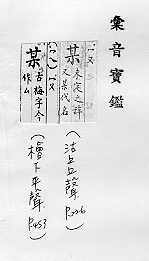 彙音寶鑑
某 未定之辞
又某代名
(沽上上聲 P.226)
某 古梅字今
作厶
(檜下平聲 P.453)